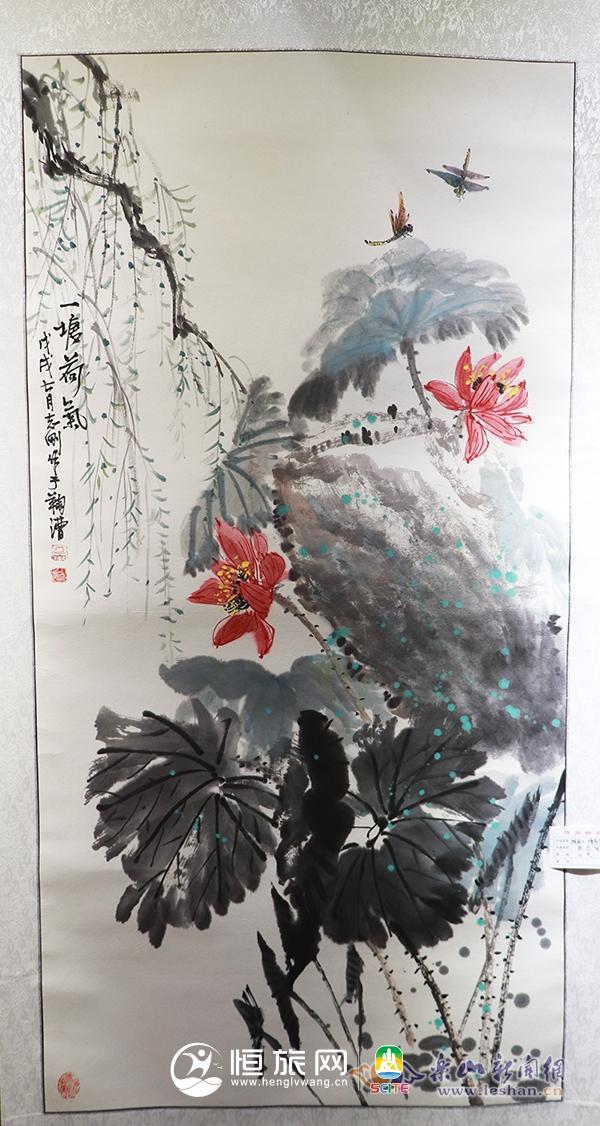 一塘荷氣
戊戌七月志刚作于鞠漕
恒旅网
www.henglvwang.cn
SCITE
乐山新闻網
www.leshan.cn